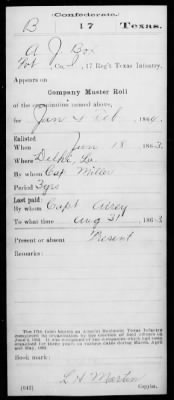 Confederate.
B 17 Texas.
A J Box
Pvt, Co. I, 17 Reg't Texas Infantry.
Appears on
Company Muster Roll
of the organization named above,
for Jan & Feb, 1864.
Enlisted
When Jun 18, 1863
Where Delhi, La
By whom Cap Miller
Period 3 yrs
Last paid:
By whom Capt
To what time Aug 31, 1863
Present or absent Present
Remarks:
Book mark:
(642) L H Martin
Copyist.